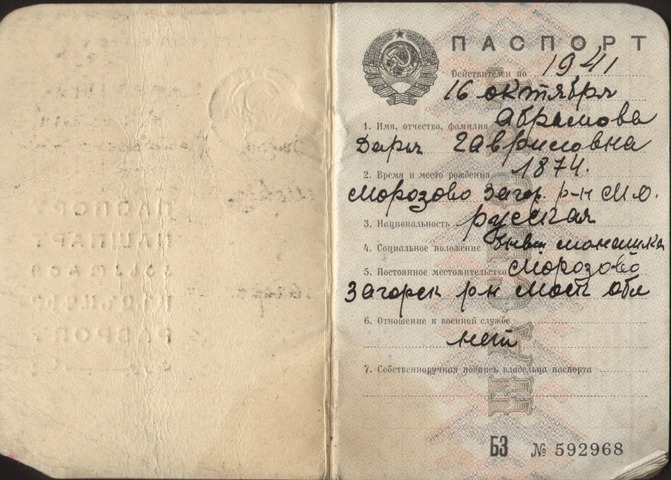 ПАСПОРТ
Действителен по 1941
16 октября
1. Имя, отчество, фамилия Абрамова
Дарья Гавриловна
2. Время и место рождения 1874.
Морозово Загор. р-н М.О.
3. Национальность русская
4. Социальное положение бывш монашка
5. Постоянное местожительство Морозово
Загорск р-н Моск обл
6. Отношение к военной службе
нет
7. Собственноручная подпись владельца паспорта
БЗ № 592968